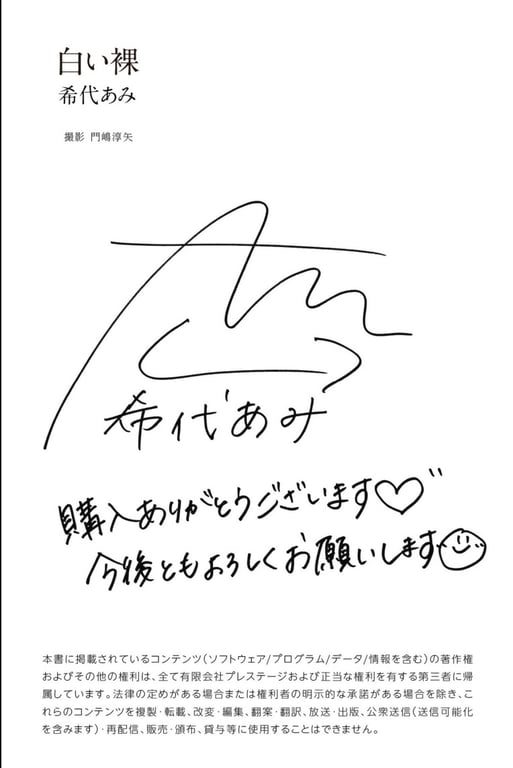 白い裸
希代あみ
撮影 門嶋淳矢
希代あみ
購入ありがとうございます♡
今後ともよろしくお願いします
本書に掲載されているコンテンツ(ソフトウェア/プログラム/データ/情報を含む)の著作権
およびその他の権利は、全て有限会社プレステージおよび正当な権利を有する第三者に帰
属しています。法律の定めがある場合または権利者の明示的な承諾がある場合を除き、こ
れらのコンテンツを複製・転載、改変・編集、翻案・翻訳、放送・出版、公衆送信(送信可能化
を含みます)・再配信、販売・頒布、貸与等に使用することはできません。